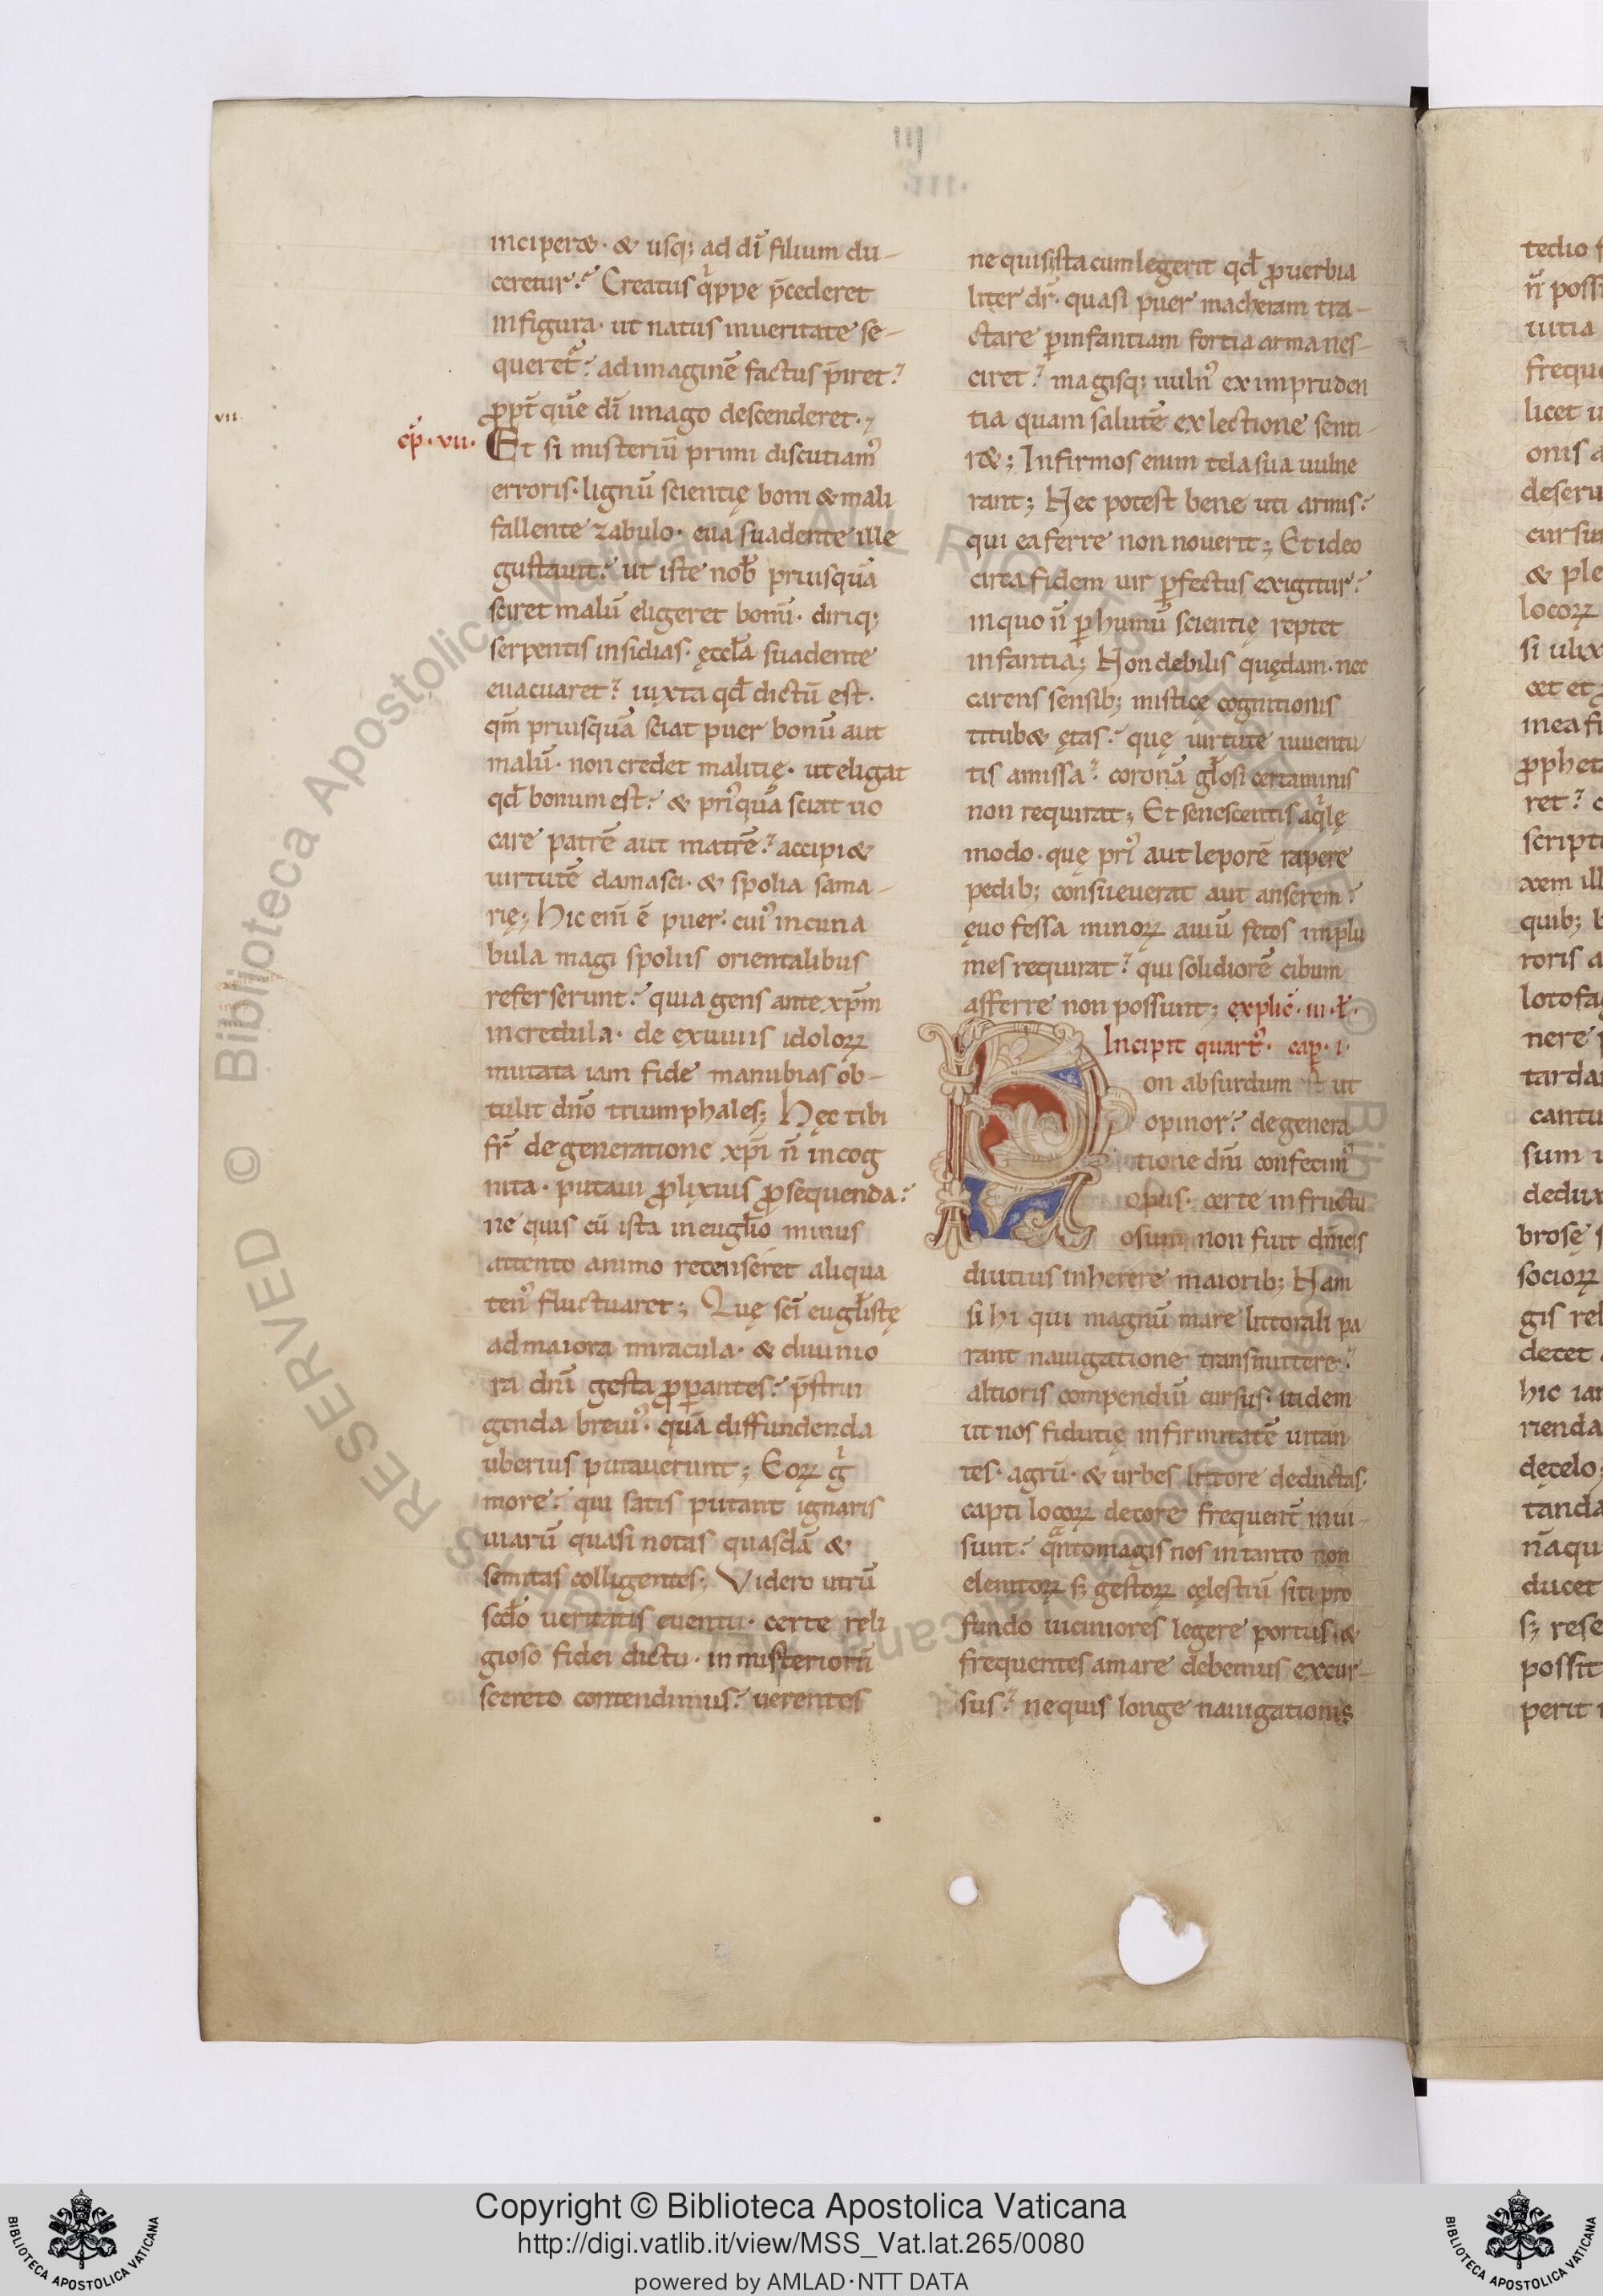 inciperet · & usq; ad dī filium du-
ceretur? Creatus q'ppe p̄cederet
in figura · ut natus in ueritate se-
queret᷑? ad imaginē factus p̄iret?
ꝓpt̄ quē dī imago descenderet ·,
vii
cp̄ · vii · Et si misteriū primi discutiam᷒
erroris · lignū scientię boni & mali
fallente zabulo · eua suadente ille
gustauit? ut iste nob̄ priusquā
sciret malū eligeret bonū · diriq;
serpentis insidias · ęccl̄a suadente
euacuaret? iuxta qd̄ dictū est ·
qm̄ priusquā sciat puer bonū aut
malū · non credet malitię · ut eligat
qd̄ bonum est? & pri᷒quā sciat uo
care patrē aut matrē? accipi&
uirtutē damasci · & spolia sama-
rię; Hic enī ē puer · cui᷒ in cuna
bula magi spoliis orientalibus
referserunt? quia gens ante xp̄m
incredula · de exuuiis idoloꝝ
mutata iam fide manubias ob-
tulit dn̄o triumphales; Hęc tibi
fr̄ de generatione xp̄i n̄ incog
nita · putaui ꝓlixius ꝓsequenda?
ne quis cū ista in eugl̄io minus
attento animo recenseret aliqua
ten᷒ fluctuaret; Quę sc̄i eugl̄istę
ad maiora miracula · & diuinio
ra dn̄i gesta ꝓꝑantes? p̄strin
genda breui᷒ · quā diffundenda
uberius putauerunt; Eoꝝ g'
more? qui satis putant ignaris
uiarū quasi notas quasdā &
semitas colligentes; Videro utrū
scd̄o ueritatis euentu · certe reli
gioso fidei dictu · in misteriorū
secreto contendimus? uerentes
ne quis ista cum legerit qd̄ ꝓuerbia
liter dr̄ · quasi puer macheram tra-
ctare ꝑ infantiam fortia arma nes-
ciret? magisq; uuln᷒ ex impruden
tia quam salutē ex lectione senti-
r&; Infirmos enim tela sua uulne
rant; Nec potest bene uti armis?
qui ea ferre non nouerit; Et ideo
circa fidem uir ꝑfectus exigitur?
in quo n̄ ꝑ humū scientię reptet
infantia; Non debilis quędam · nec
carens sensib; misticę cognitionis
titub& ętas? quę uirtute iuuentu
tis amissa? coronā gl̄osi certaminis
non requirat; Et senescentis aq'lę
modo · quę pri᷒ aut leporē rapere
pedib; consueuerat aut anserem?
ęuo fessa minoꝝ auiū fetos implu
mes requirat? qui solidiorē cibum
afferre non possunt; explic̄ · iii · l̄ ·
Incipit quart᷒ · cap · i ·
Non absurdum est ut
opinor? de genera
tione dn̄i confecim᷒
opus · certe infructu
osum non fuit dn̄icis
diutius inherere maiorib; Nam
si hi qui magnū mare littorali pa
rant nauigatione transmittere?
altioris compendiū cursus · itidem
ut nos fidutię infirmitatē uitan
tes · agrū · & urbes littore deductas ·
capti locoꝝ decore frequent̄ inui-
sunt? q̄nto magis nos in tanto non
elemtoꝝ s; gestoꝝ cęlestiū siti pro
fundo uiciniores legere portus · &
frequentes amare debemus excur-
sus? ne quis longe nauigationis
Copyright © Biblioteca Apostolica Vaticana
http://digi.vatlib.it/view/MSS_Vat.lat.265/0080
powered by AMLAD·NTT DATA
BIBLIOTECA APOSTOLICA VATICANA
BIBLIOTECA APOSTOLICA VATICANA